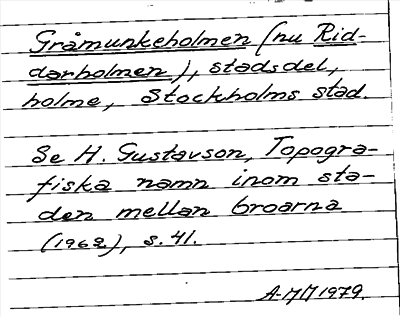 Gråmunkeholmen (nu Rid-
darholmen), stadsdel,
holme, Stockholms stad.
Se H. Gustavson, Topogra-
fiska namn inom sta-
den mellan broarna
(1962), s. 41.
A-MM 1979.